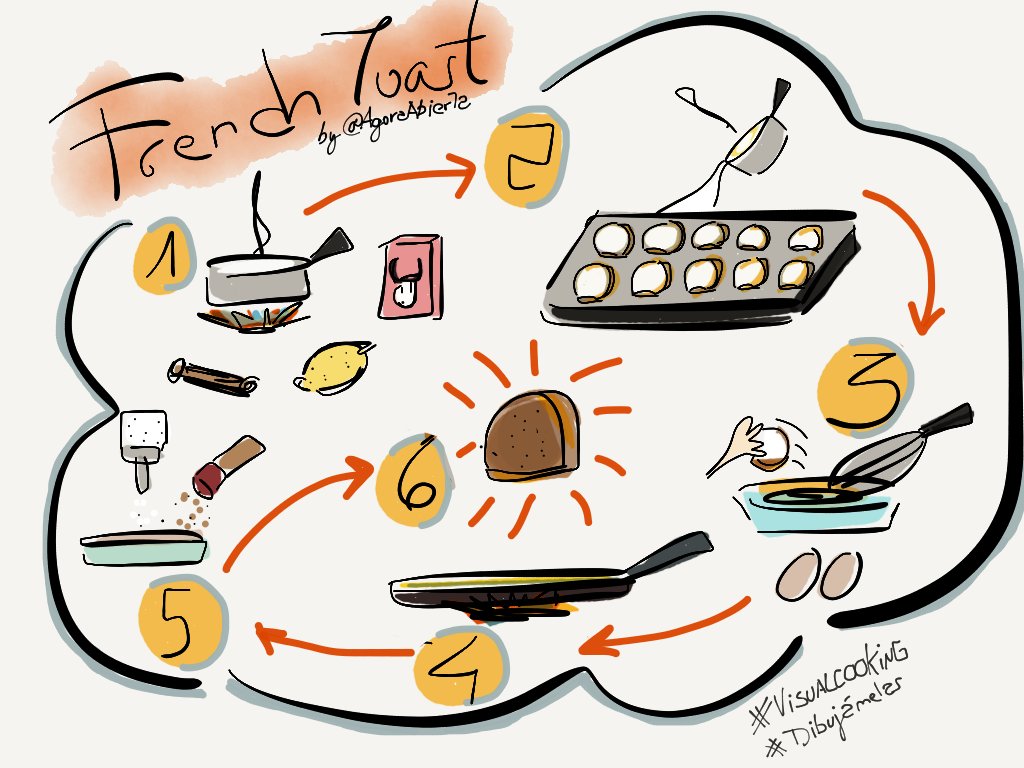 French Toast
by @AgoraAbierta
1
2
3
4
5
6
#VISUALCOOKING
#Dibújamelas